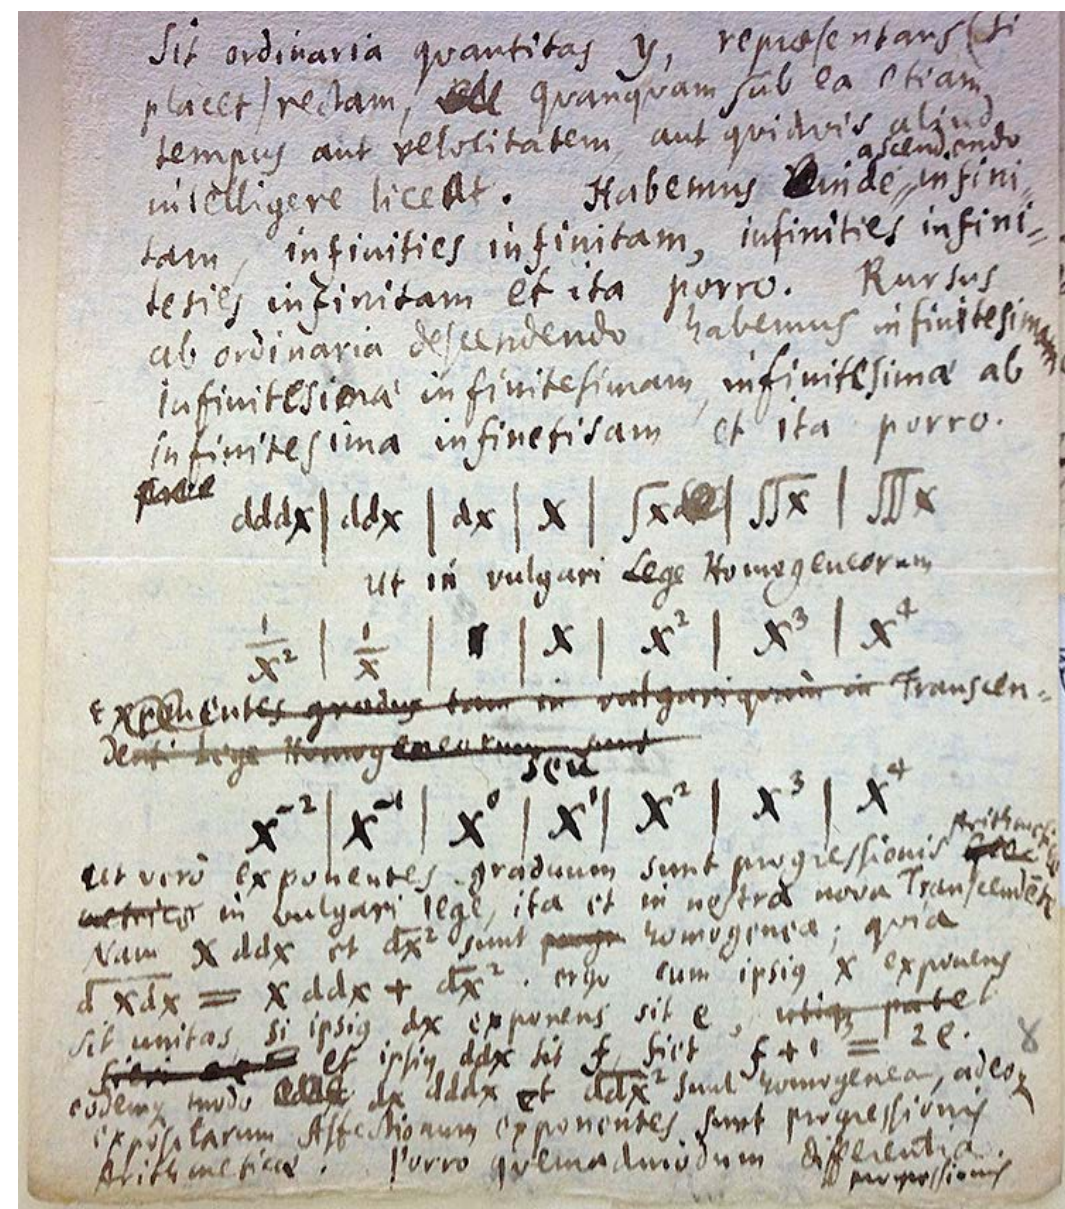 Sit ordinaria quantitas y, repræsentans (si
placet) rectam, quanquam sub ea etiam
tempus aut velocitatem, aut quidvis aliud
intelligere liceat. Habemus inde ascendendo infini-
tam, infinities infinitam, infinities infini-
ties infinitam et ita porro. Rursus
ab ordinaria descendendo habemus infinitesimam
infinitesima infinitesimam, infinitesima ab
infinitesima infinetisam et ita porro.
dddx | ddx | dx | x | ∫x | ∫∫x | ∫∫∫x
ut in vulgari Lege Homogeneorum
1/x² | 1/x | 1 | x | x² | x³ | x⁴
exponentes gradus tam in vulgari quam in Transcen-
denti Lege Homogeneorum sunt
seu
x⁻² | x⁻¹ | x⁰ | x¹ | x² | x³ | x⁴
ut verò exponentes graduum sunt progressionis Arithmeticae
in vulgari lege, ita et in nostra nova Transcendente
Nam x ddx et dx² sunt homogenea; quia
d xdx = x ddx + dx². ergo cum ipsius x exponens
sit unitas, si ipsius dx exponens sit e, utique patet
et ipsius ddx sit f, fiet f + 1 = 2e. 8
eodemque modo dx dddx et ddx² sunt homogenea, adeoque
expositarum Affectionum exponentes sunt progressionis
Arithmeticæ. Porro quemadmodum differentia
progressionis